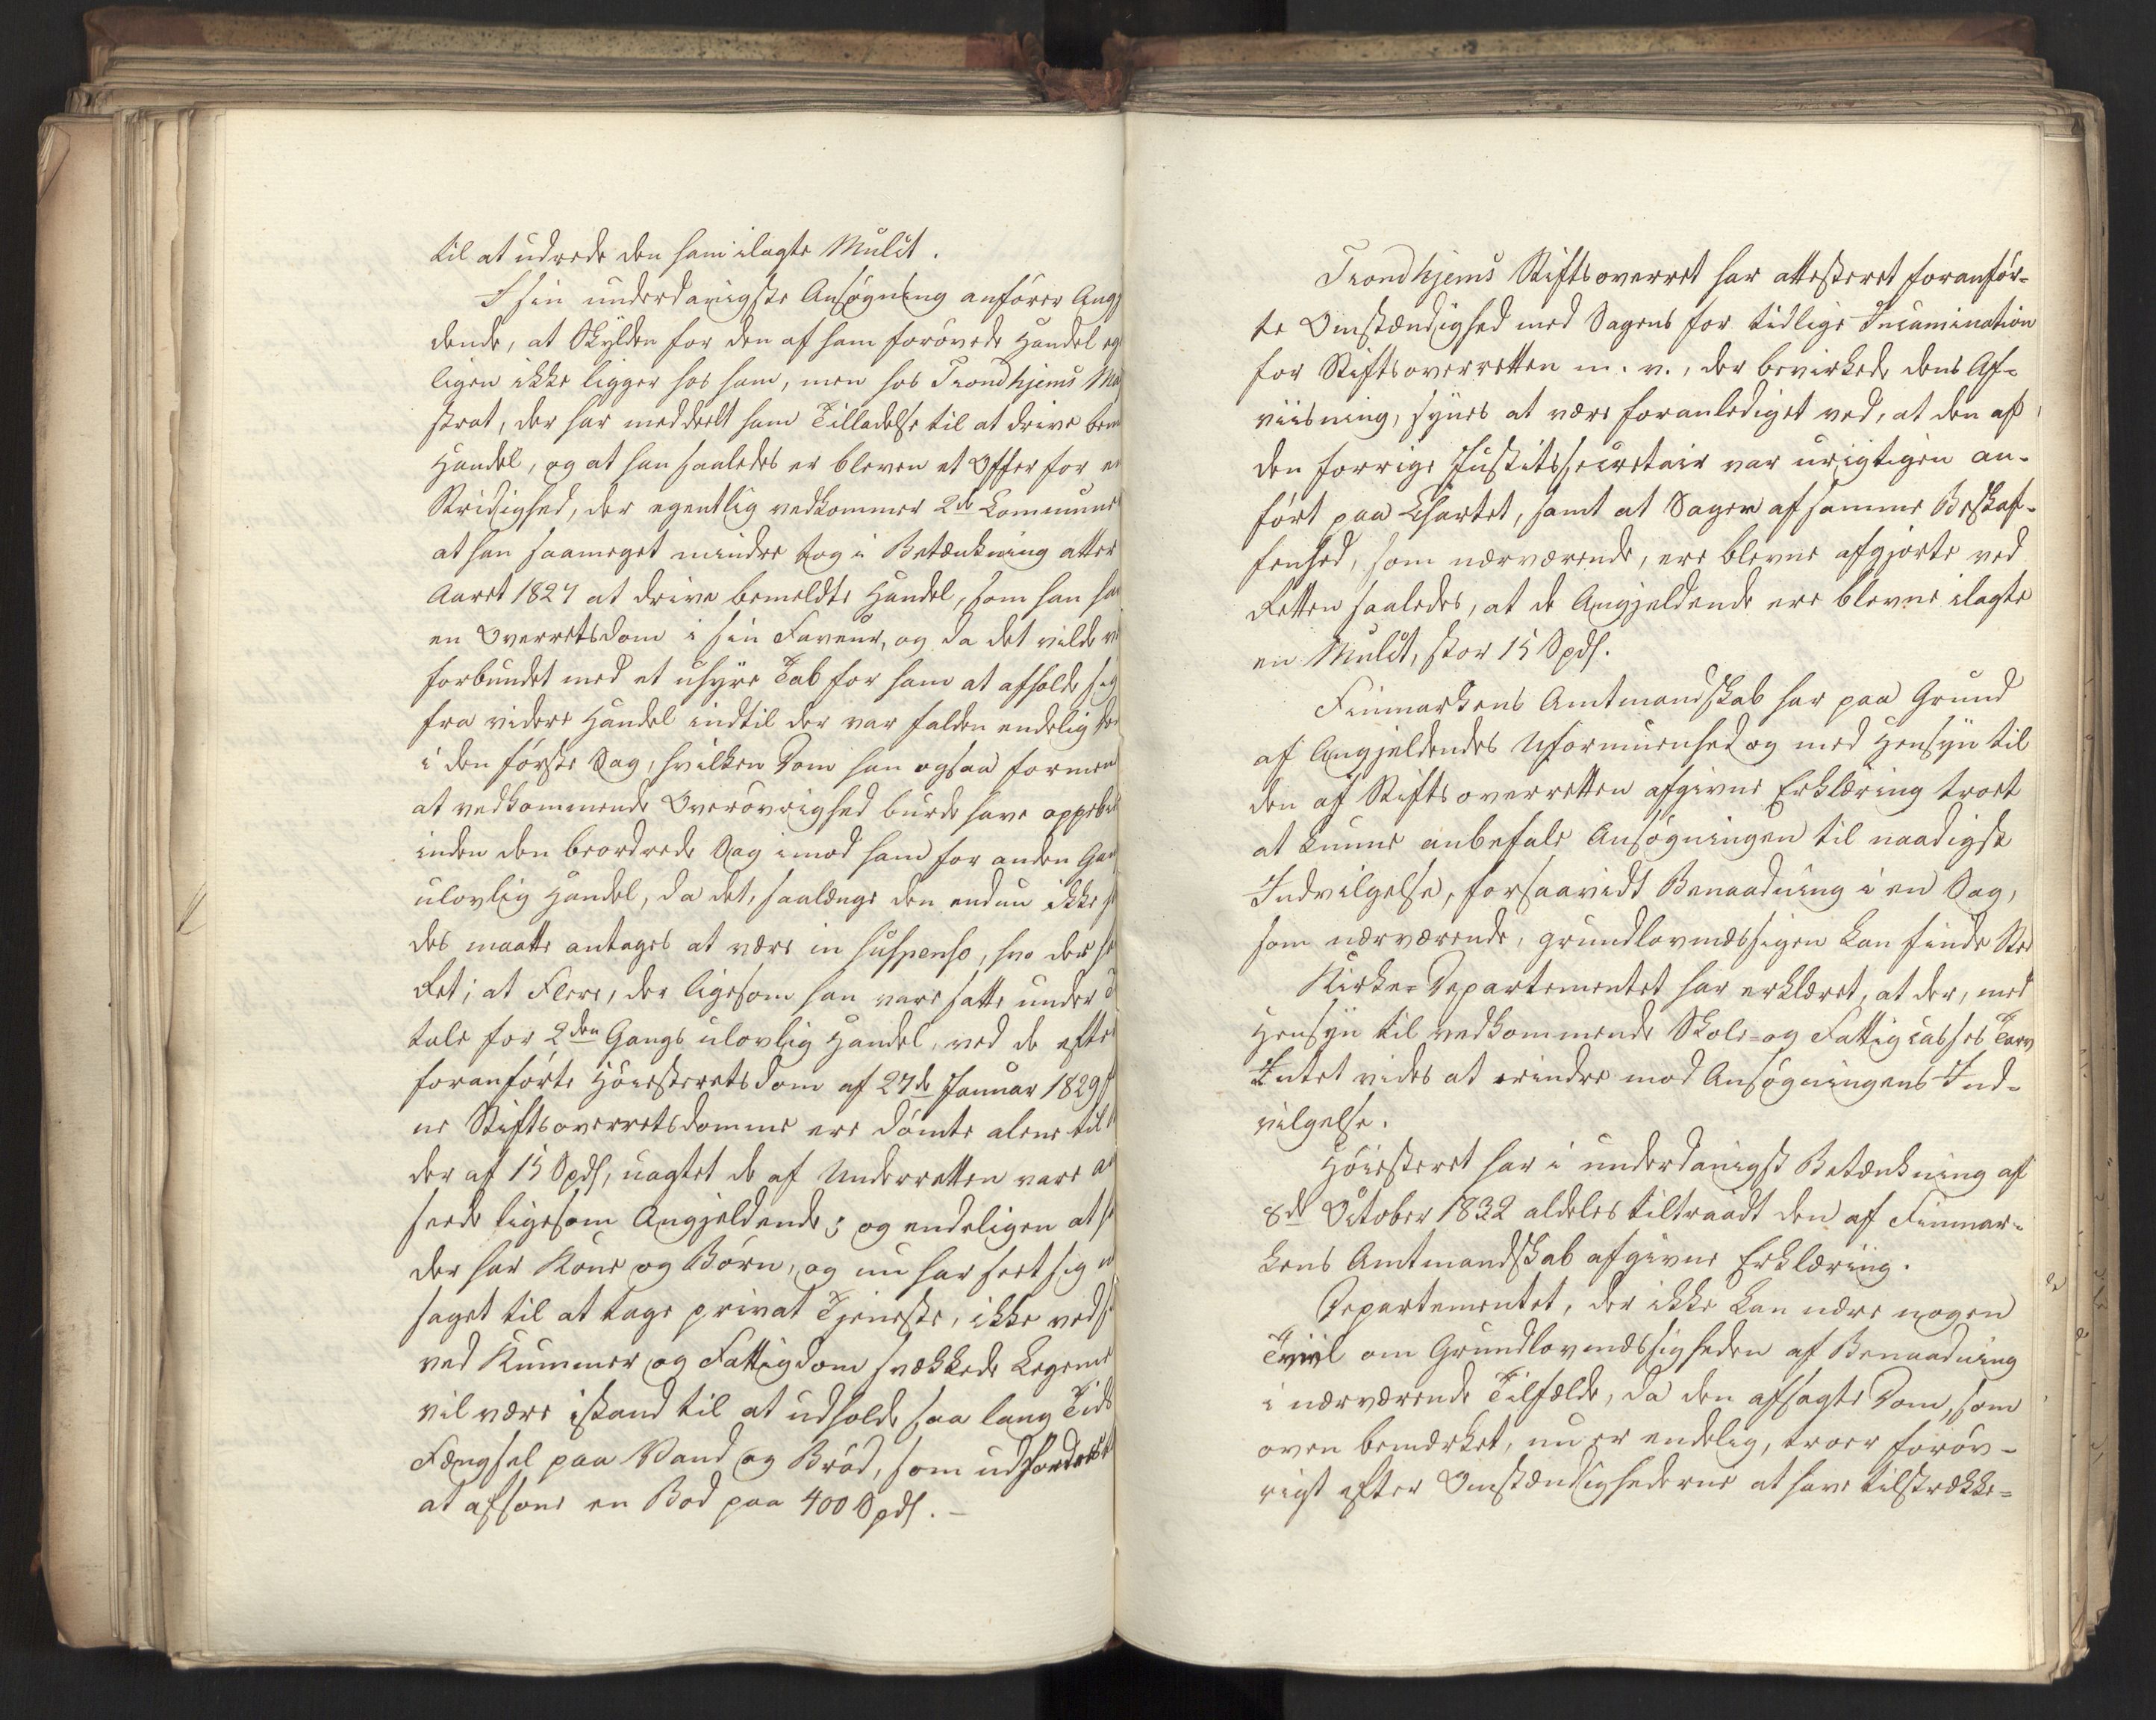 til at udrede den ham ilagte Mulct.
I sin underdanigste Ansøgning anfører Angj
dende, at Skylden for den af ham forøvede Handel eg
ligen ikke ligger hos ham, men hos Trondhjems Ma
strat, der har meddeelt ham Tilladelse til at drive bem
Handel, og at han saaledes er bleven et Offer for en
Stridighed, der egentlig vedkommer 2de Communer
at han saameget mindre tog i Betænkning atter
Aaret 1827 at drive bemeldte Handel, som han ha
en Overretsdom i sin Faveur, og da det vilde væ
forbundet med et uhyre Tab for ham at afholde sig
fra videre Handel indtil der var falden endelig Do
i den første Sag, hvilken Dom han ogsaa formen
at vedkommende Overøvrighed burde have oppebi
inden den beordrede Sag imod ham for anden Gan
ulovlig Handel, da det, saalænge den endnu ikke
des maatte antages at være in suspenso, hvo der ha
Ret; at Flere, der ligesom han vare satte under T
tale for 2den Gangs ulovlig Handel, ved de efter
foranførte Høiesteretsdom af 27de Januar 1829 f
ne Stiftsoverretsdomme ere dømte alene til
der af 15 Spdl, uagtet de af Underretten vare an
seede ligesom Angjeldende; og endeligen at ha
der har Kone og Børn, og nu har seet sig n
saget til at tage privat Tjeneste, ikke ved si
ved Kummer og Fattigdom svækkede Legeme
vil være istand til at udholde saa lang Tids
Fængsel paa Vand og Brød, som udfordres
at afsone en Bod paa 400 Spdl. -
Trondhjems Stiftsoverret har attesteret foranfør-
te Omstændighed med Sagens for tidlige Incamination
for Stiftsoverretten m. v., der bevirkede dens Af-
viisning, synes at være foranlediget ved, at den af
den forrige Justitssecretair var urigtigen an-
ført paa Chartet, samt at Sager af samme Beskaf-
fenhed, som nærværende, ere blevne afgjorte ved
Retten saaledes, at de Angjeldende ere blevne ilagte
en Mulct, stor 15 Spdl.
Finmarkens Amtmandskab har paa Grund
af Angjeldendes Uformuenhed og med Hensyn til
den af Stiftsoverretten afgivne Erklæring troet
at kunne anbefale Ansøgningen til naadigst
Indvilgelse, forsaavidt Benaadning i en Sag,
som nærværende, grundlovmæssigen kan finde Sted
Kirke-Departementet har erklæret, at der, med
Hensyn til vedkommende Skole- og Fattigcasses Tarv
Intet vides at erindre mod Ansøgningens Ind-
vilgelse.
Høiesteret har i underdanigst Betænkning af
8de October 1832 aldeles tiltraadt den af Finmar-
kens Amtmandskab afgivne Erklæring.
Departementet, der ikke kan nære nogen
Tvivl om Grundlovmæssigheden af Benaadning
i nærværende Tilfælde, da den afsagte Dom, som
oven bemærket, nu er endelig, troer forøv-
rigt efter Omstændighederne at have tilstrække-